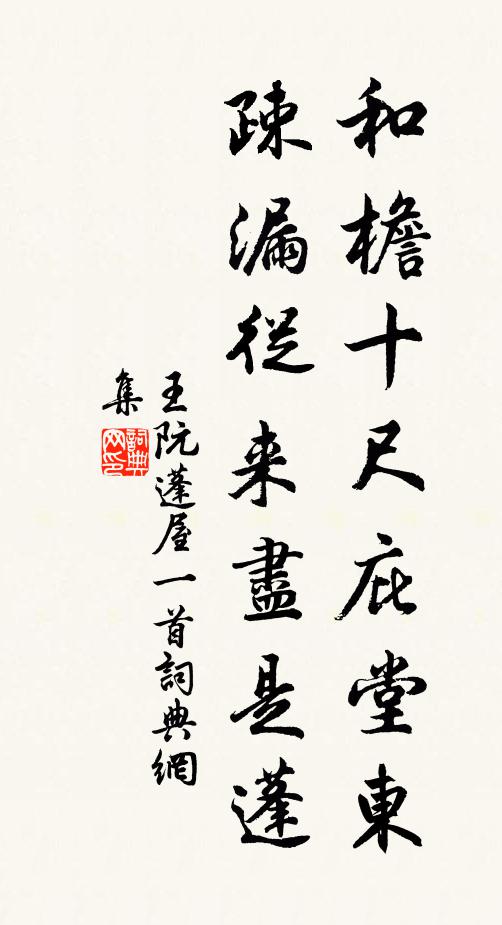 和檐十尺庇堂東
疎漏從来盡是蓬
王阮蓬屋一首詞典網
集
詞典
网印